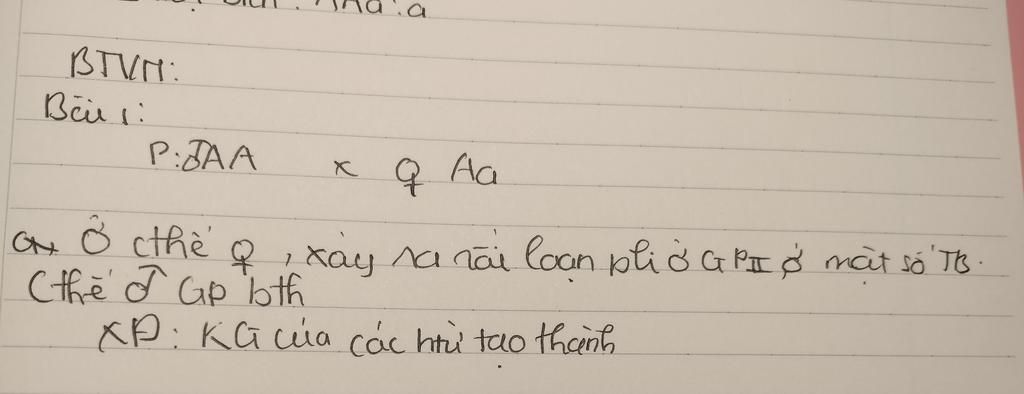 AAa : a
BTVN:
Bài 1:
P: ♂AA x ♀ Aa
Ở cthể ♀, xảy ra rối loạn pli ở GPII ở một số TB.
Cthể ♂ GP bth
XĐ: KG của các htử tạo thành